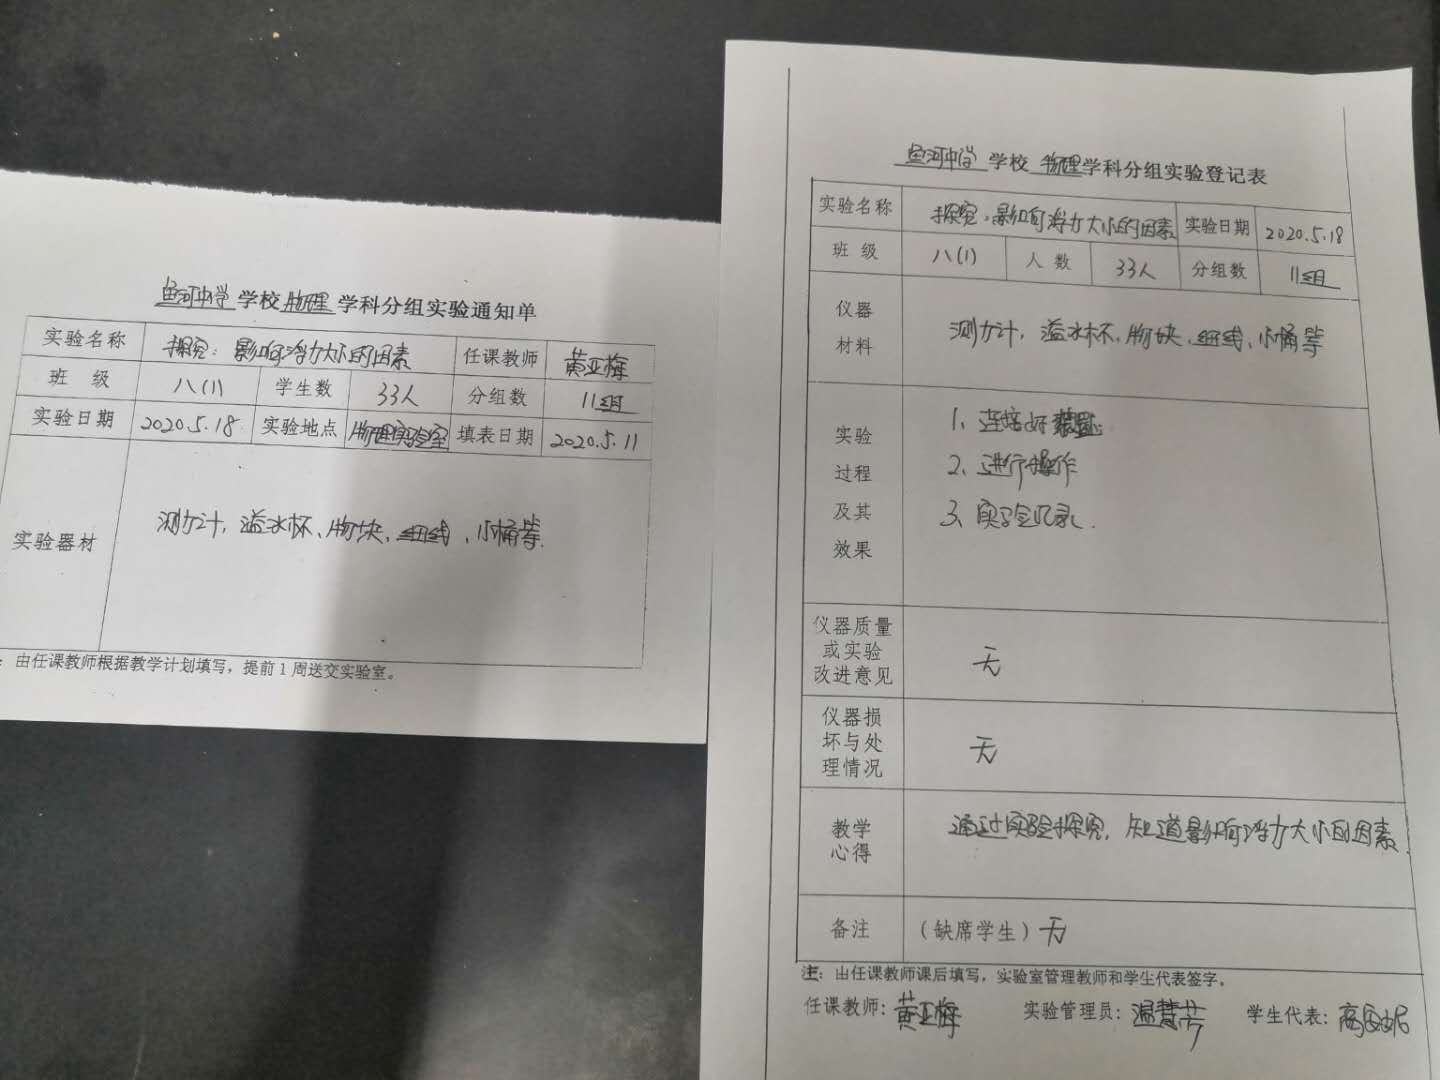 鱼河中学 学校 物理 学科分组实验通知单
实验名称 探究：影响浮力大小的因素 任课教师 黄亚梅
班 级 八(1) 学生数 33人 分组数 11组
实验日期 2020.5.18 实验地点 物理实验室 填表日期 2020.5.11
实验器材 测力计，溢水杯、物块、细线、小桶等.
：由任课教师根据教学计划填写，提前1周送交实验室。
鱼河中学 学校 物理 学科分组实验登记表
实验名称 探究：影响浮力大小的因素 实验日期 2020.5.18
班 级 八(1) 人 数 33人 分组数 11组
仪器
材料
测力计，溢水杯、物块、细线、小桶等
实验
过程
及其
效果
1、连接好装置
2、进行操作
3、实验记录.
仪器质量
或实验
改进意见
无
仪器损
坏与处
理情况
无
教学
心得
通过实验探究，知道影响浮力大小的因素.
备注 （缺席学生）无
注：由任课教师课后填写，实验室管理教师和学生代表签字。
任课教师：黄亚梅 实验管理员：温慧芳 学生代表：高